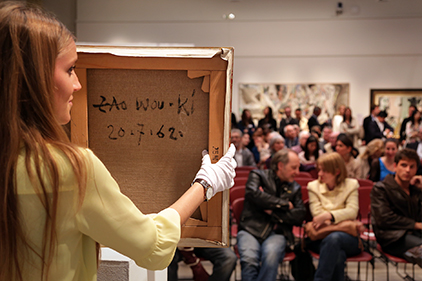 ZAO WOU-Ki
20.7.62.